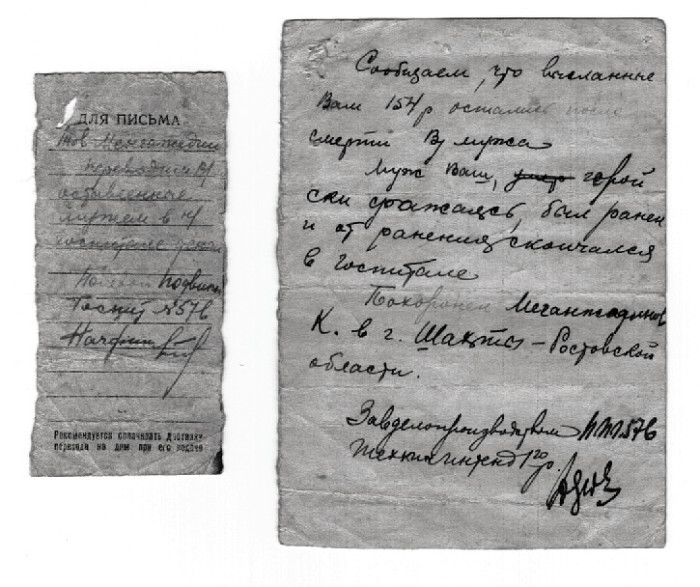 ДЛЯ ПИСЬМА
Тов
переводим В/
оставленные
мужем в н/
госпитале день
Полевой подвиж
Госпит №576
Начфин
Рекомендуется оплачивать доставку
перевода на дом при его подаче
Сообщаем, что высланные
Вам 154 р остались после
смерти В/ мужа
Муж Ваш, умер герой
ски сражаясь, был ранен
и от ранения скончался
в госпитале
Похоронен
К. в г. Шахты – Ростовской
области.
Завделопроизводством ППГ 576
Техник интенд 1го р.